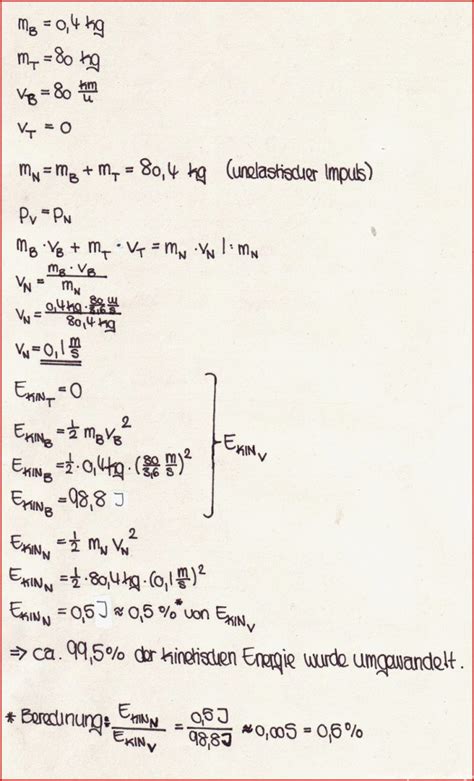 m_B = 0,4 kg
m_T = 80 kg
v_B = 80 km/h
v_T = 0
m_N = m_B + m_T = 80,4 kg (unelastischer Impuls)
p_V = p_N
m_B · v_B + m_T · v_T = m_N · v_N |: m_N
v_N = m_B · v_B / m_N
v_N = 0,4 kg · 80/3,6 m/s / 80,4 kg
v_N = 0,1 m/s
E_KIN_T = 0
E_KIN_B = 1/2 m_B v_B²
E_KIN_B = 1/2 · 0,4 kg · (80/3,6 m/s)²
E_KIN_B = 98,8 J
} E_KIN_V
E_KIN_N = 1/2 m_N v_N²
E_KIN_N = 1/2 · 80,4 kg · (0,1 m/s)²
E_KIN_N = 0,5 J ≈ 0,5 %* von E_KIN_V
⇒ ca. 99,5% der kinetischen Energie wurde umgewandelt.
* Berechnung: E_KIN_N / E_KIN_V = 0,5 J / 98,8 J ≈ 0,005 = 0,5 %